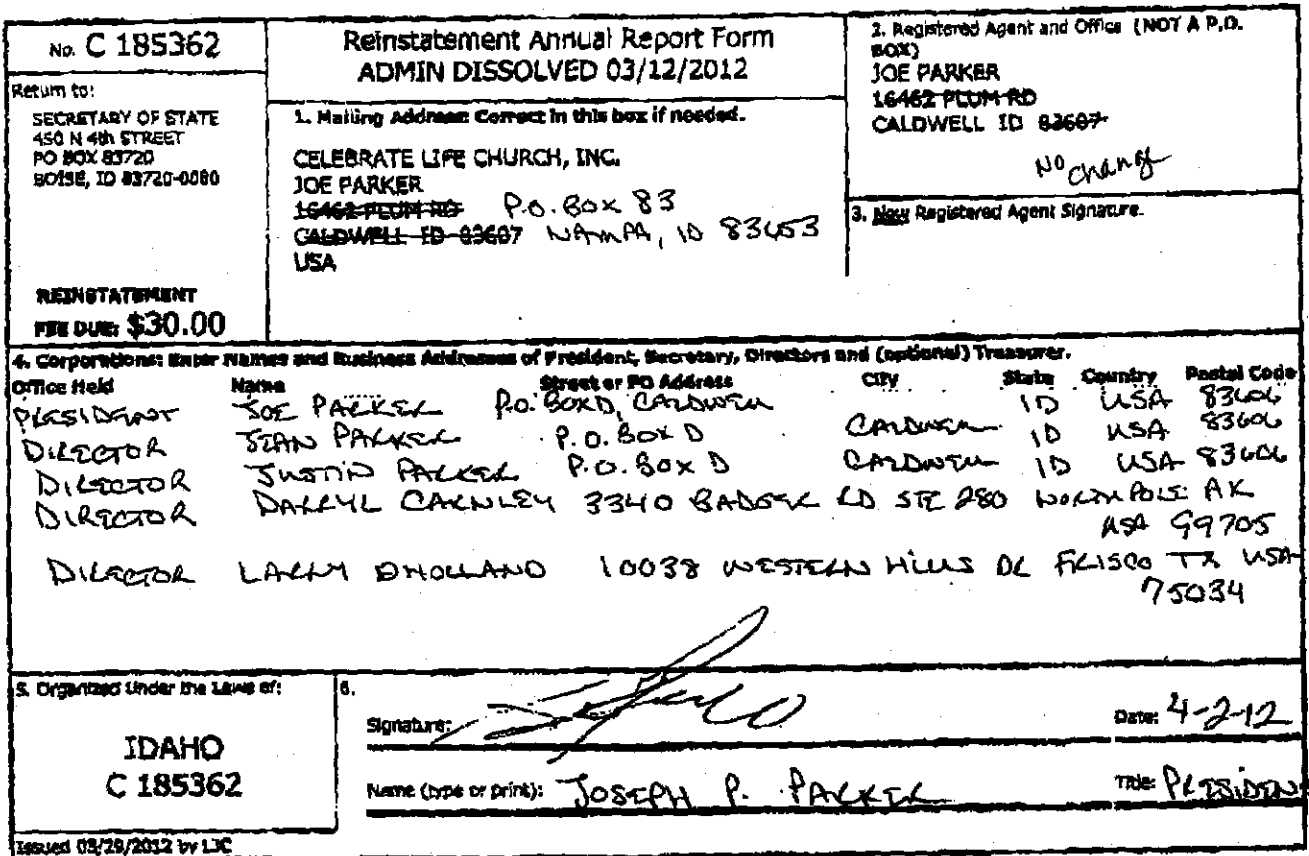 No. C 185362
Return to:
SECRETARY OF STATE
450 N 4th STREET
PO BOX 83720
BOISE, ID 83720-0080
REINSTATEMENT
FEE DUE: $30.00
Reinstatement Annual Report Form
ADMIN DISSOLVED 03/12/2012
1. Mailing Address: Correct in this box if needed.
CELEBRATE LIFE CHURCH, INC.
JOE PARKER
16462 PLUM RD P.O. BOX 83
CALDWELL ID 83607 NAMPA, ID 83653
USA
2. Registered Agent and Office (NOT A P.O.
BOX)
JOE PARKER
16462 PLUM RD
CALDWELL ID 83607
No change
3. New Registered Agent Signature.
4. Corporations: Enter Names and Business Addresses of President, Secretary, Directors and (optional) Treasurer.
Office Held Name Street or PO Address City State Country Postal Code
PRESIDENT JOE PARKER P.O. BOX D, CALDWELL ID USA 83606
DIRECTOR PARKER P.O. BOX D CALDWELL ID USA 83606
DIRECTOR JUSTIN PARKER P.O. BOX D CALDWELL ID USA 83606
DIRECTOR DARRYL CARNLEY 3340 BADGER RD STE 280 NORTH POLE AK
USA 99705
DIRECTOR LARRY DHOLLAND 10038 WESTERN HILLS DR FRISCO TX USA
75034
5. Organized Under the Laws of:
IDAHO
C 185362
6.
Signature: Date: 4-2-12
Name (type or print): JOSEPH P. PARKER Title: PRESIDENT
Issued 03/29/2012 by LJC